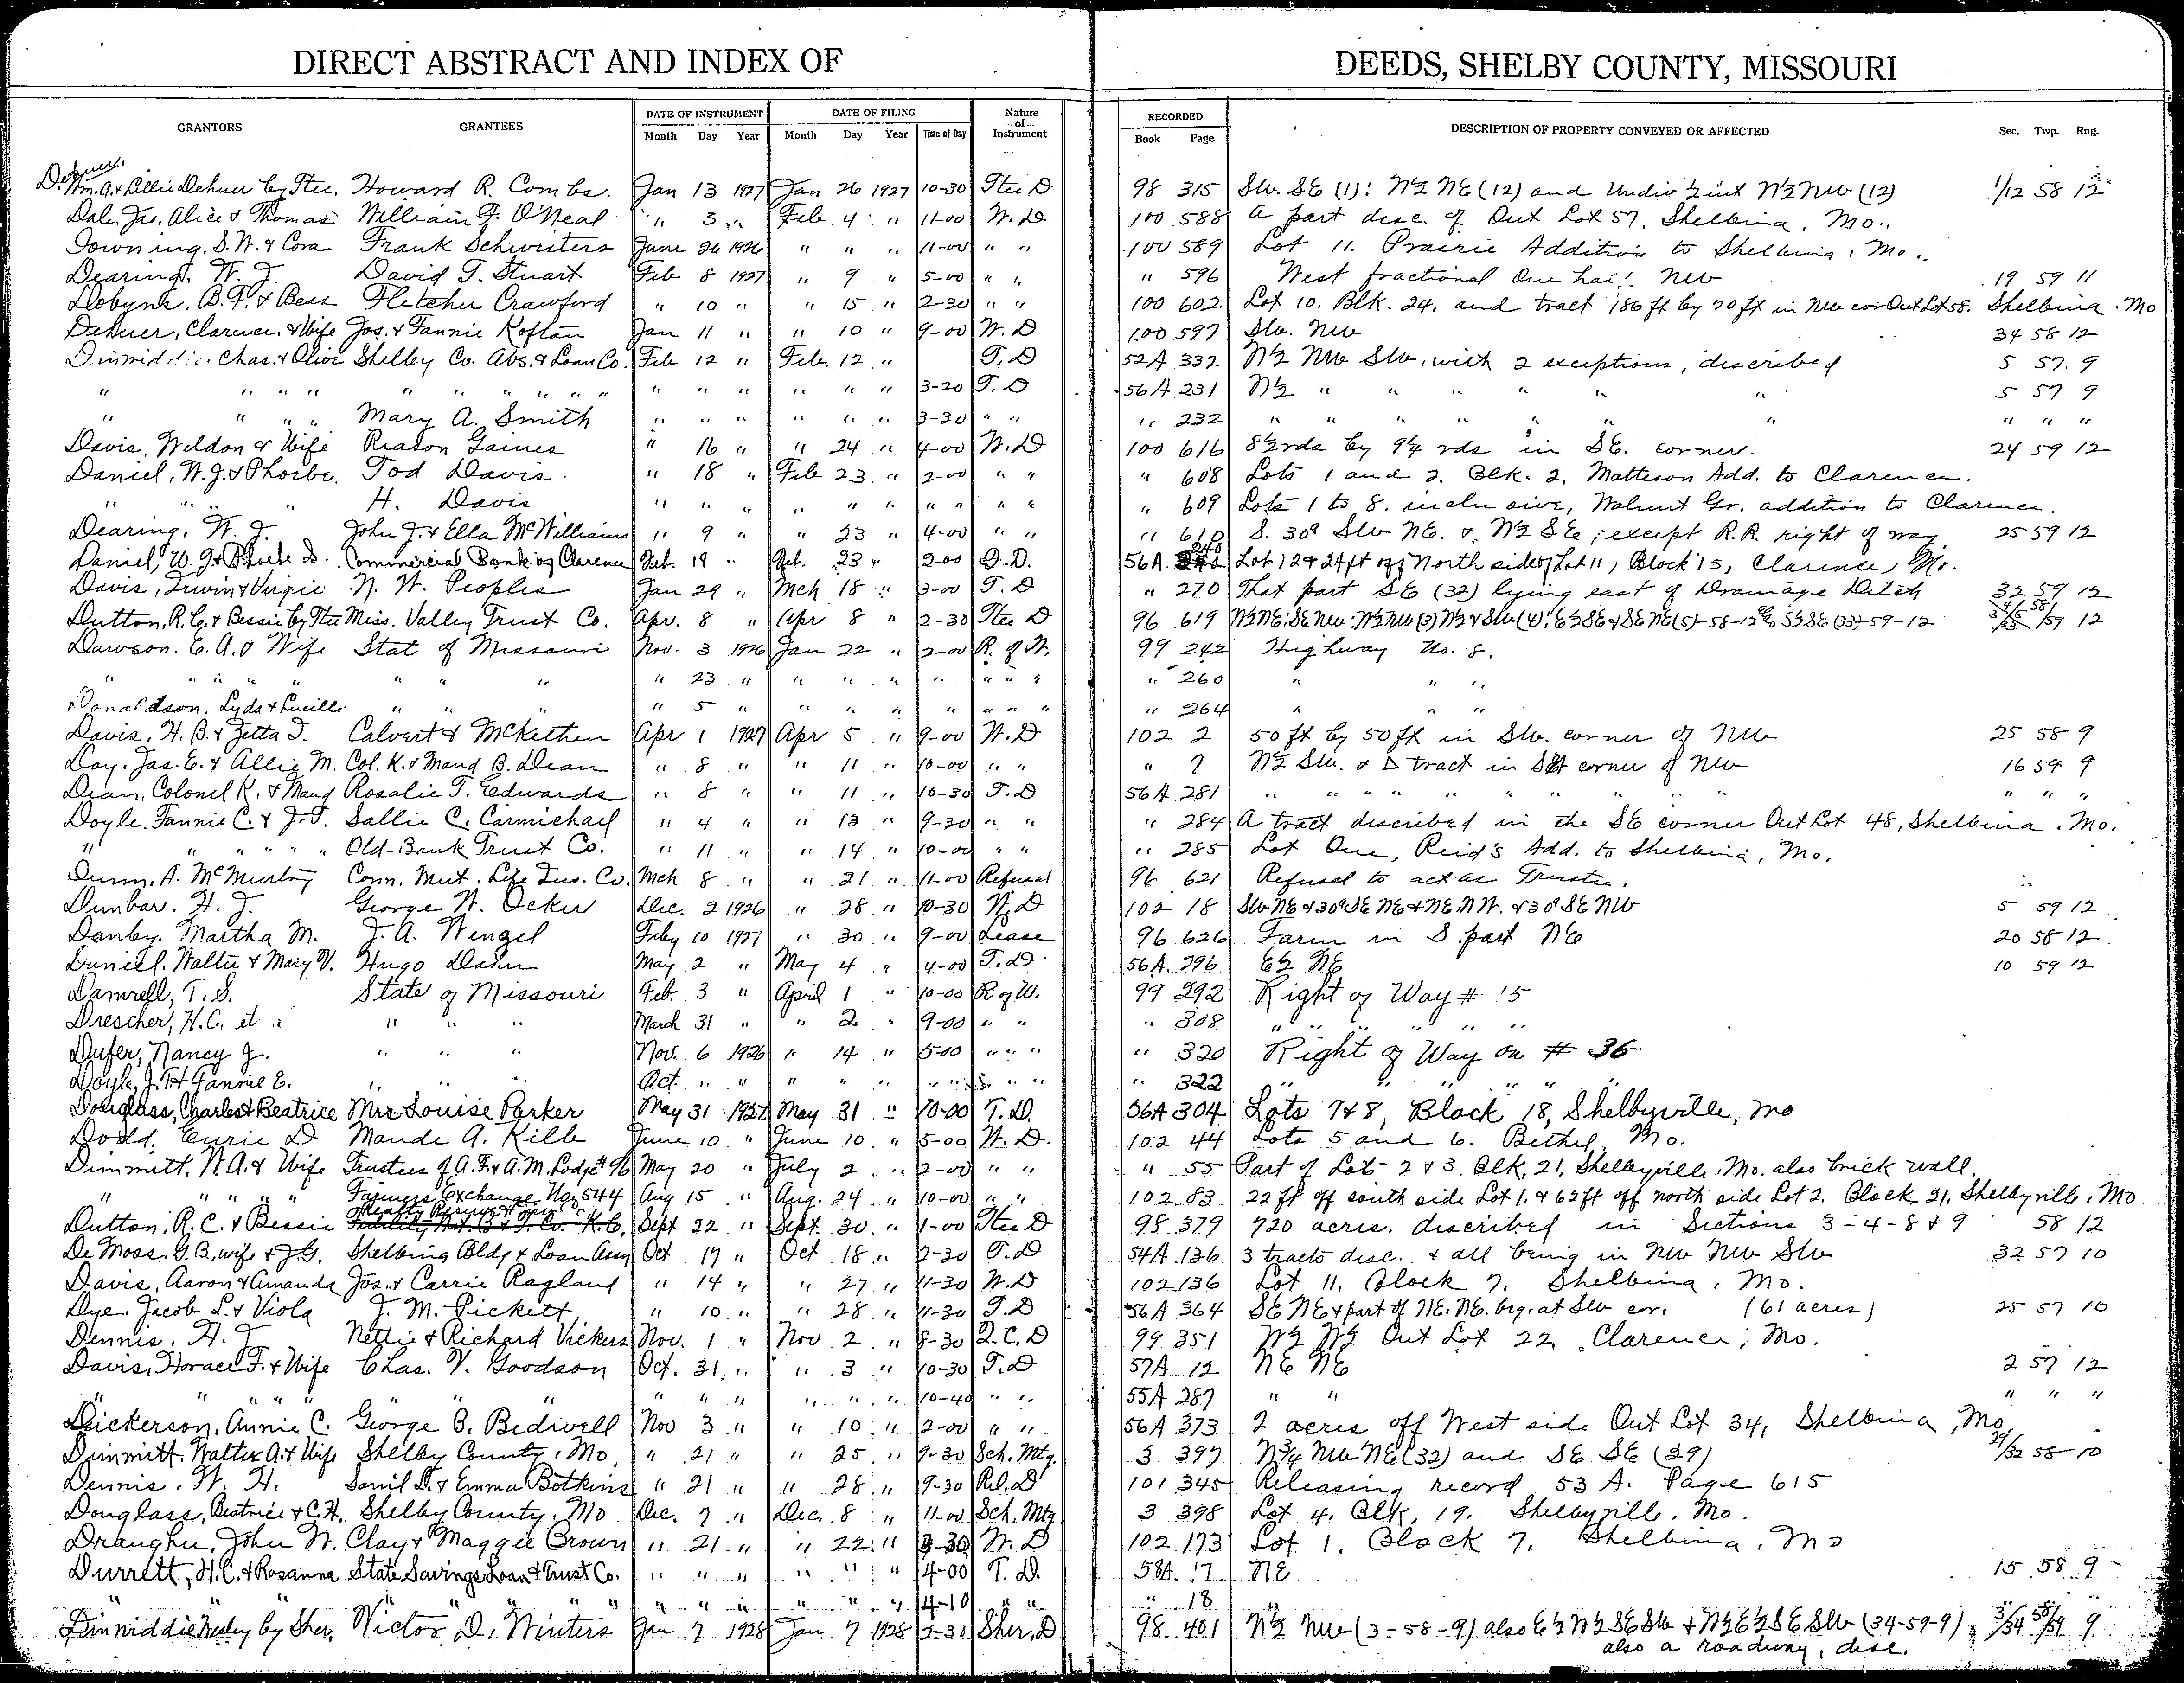 DIRECT ABSTRACT AND INDEX OF DEEDS, SHELBY COUNTY, MISSOURI
GRANTORS GRANTEES DATE OF INSTRUMENT DATE OF FILING Nature of Instrument RECORDED DESCRIPTION OF PROPERTY CONVEYED OR AFFECTED Sec. Twp. Rng.
Month Day Year Month Day Year Time of Day Book Page
Dehner
Wm. A. & Lillie Dehner by Stee. Howard R. Combs. Jan 13 1927 Jan 26 1927 10-30 Stee D 98 315 SW. SE (1): N½ NE (12) and Undiv ½ int N½ NW (12) 1/12 58 12
Dale, Jas. Alice & Thomas William F. O'Neal " 3 " Feb 4 " 11-00 W. D 100 588 A part desc. of Out Lot 57, Shelbina, Mo.
Downing, S. W. & Cora Frank Schwieters June 26 1926 " " " 11-00 " " 100 589 Lot 11. Prairie Addition to Shelbina, Mo.
Dearing, W. J. David T. Stuart Feb 8 1927 " 9 " 5-00 " " " 596 West fractional One half NW 19 59 11
Dobyns, B. F. & Bess Fletcher Crawford " 10 " " 15 " 2-30 " " 100 602 Lot 10. Blk. 24, and tract 186 ft by 70 ft in NW cor Out Lot 58. Shelbina, Mo
Dehner, Clarence. & Wife Jos. & Fannie Koftan Jan 11 " " 10 " 9-00 W. D 100 597 SW. NW 34 58 12
Chas. & Olive Shelby Co. Abs. & Loan Co. Feb 12 " Feb. 12 " T. D 52A 332 N½ NW SW, with 2 exceptions, described 5 57 9
" " " " " " " " " " " " " " " " " 3-20 T. D 56A 231 N½ " " " " " 5 57 9
" " " " Mary A. Smith " " " " " " 3-30 " " " 232 " " " " " " " " "
Davis, Weldon & Wife Reason Gaines " 16 " " 24 " 4-00 W. D 100 616 8½ rds by 9¼ rds in SE. corner. 24 59 12
Daniel, W. J. & Phoebe. Tod Davis. " 18 " Feb 23 " 2-00 " " " 608 Lots 1 and 2. Blk. 2, Matteson Add. to Clarence.
" " " H. Davis " " " " " " " " " " " 609 Lots 1 to 8. inclusive, Walnut Gr. addition to Clarence.
Dearing, W. J. John J. & Ella McWilliams " 9 " " 23 " 4-00 " " " 610 S. 30a SW NE. & N½ SE; except R. R. right of way 25 59 12
Daniel, W. J. & Phoebe D. Commercial Bank of Clarence Feb. 18 " Feb. 23 " 2-00 D. D. 56A. 248 Lot 12 & 24 ft off North side of Lot 11, Block 15, Clarence, Mo.
Davis, Irwin & Virgie N. W. Peoples Jan 29 " Mch 18 " 3-00 T. D " 270 That part SE (32) lying east of Drainage Ditch 32 59 12
Dutton, R. C. & Bessie by Stee Miss. Valley Trust Co. Apr. 8 " Apr 8 " 2-30 Stee D 96 619 N½ NE; SE NW; N½ NW (3) N½ & SW (4); E½ SE & SE NE (5)-58-12 S½ SE (33)-59-12 12
Dawson. E. A. & Wife Stat of Missouri Nov. 3 1926 Jan 22 " 2-00 R. of W. 99 242 Highway No. 8.
" " " " " " " " 23 " " " " " " " " " 260 " " "
Donaldson. Lyda & Lucille " " " " 5 " " " " " " " " " 264 " " "
Davis, H. B. & Zetta I. Calvert & McKethen Apr 1 1927 Apr 5 " 9-00 W. D 102 2 50 ft by 50 ft in SW. corner of NW 25 58 9
Day, Jas. E. & Allie M. Col. K. & Maud B. Dean " 8 " " 11 " 10-00 " " " 7 N½ SW. & Δ tract in SE corner of NW 16 59 9
Dean, Colonel K. & Maud Rosalie T. Edwards " 8 " " 11 " 10-30 T. D 56A 281 " " " " " " " " " " " "
Doyle, Fannie C. & J. T. Sallie C. Carmichael " 4 " " 13 " 9-30 " " " 284 A tract described in the SE corner Out Lot 48, Shelbina, Mo.
" " " " " Old-Bank Trust Co. " 11 " " 14 " 10-00 " " " 285 Lot One, Reid's Add. to Shelbina, Mo.
Dunn, A. McMurtry Conn. Mut. Life Ins. Co. Mch 8 " " 21 " 11-00 Refusal 96 621 Refusal to act as Trustee.
Dunbar, H. J. George W. Ocker Dec. 2 1926 " 28 " 10-30 W. D 102 18 SW NE & 30a SE NE & NE NW. & 30a SE NW 5 59 12
Danby, Martha M. J. A. Wengel Feby 10 1927 " 30 " 9-00 Lease 96 626 Farm in S. part NE 20 58 12
Daniel, Walter & Mary V. Hugo Dahn May 2 " May 4 " 4-00 T. D 56A. 296 E½ NE 10 59 12
Damrell, T. S. State of Missouri Feb. 3 " April 1 " 10-00 R of W. 99 292 Right of Way # 15
Drescher, H. C. et " " " March 31 " " 2 " 9-00 " " " 308 " " " " " "
Dufer, Nancy J. " " " Nov. 6 1926 " 14 " 5-00 " " " " 320 Right of Way on # 36
Doyle, J. T. & Fannie E. " " " Oct. " " " " " " " " " " " 322 " " " " "
Douglass, Charles & Beatrice Mrs Louise Parker May 31 1927 May 31 " 10-00 T. D. 56A 304 Lots 7 & 8, Block 18, Shelbyville, Mo
Dodd, Eurie D Maude A. Kille June 10 " June 10 " 5-00 W. D. 102 44 Lots 5 and 6. Bethel, Mo.
Dimmitt, W. A. & Wife Trustees of A. F. & A. M. Lodge # 96 May 20 " July 2 " 2-00 " " " 55 Part of Lot 2 & 3. Blk. 21, Shelbyville, Mo. also brick wall.
" " " " " Farmers Exchange No. 544 Aug 15 " Aug. 24 " 10-00 " " 102 83 22 ft off south side Lot 1. & 62 ft off north side Lot 2. Block 21, Shelbyville, Mo
Dutton, R. C. & Bessie Sept 22 " Sept. 30 " 1-00 Stee D 98 379 720 acres. described in Sections 3-4-8 & 9 58 12
De Moss. G. B. wife & J. G. Shelbina Bldg & Loan Assn Oct 17 " Oct 18 " 2-30 T. D 54A 136 3 tracts desc. & all being in NW NW SW 32 57 10
Davis, Aaron & Amanda Jos. & Carrie Ragland " 14 " " 27 " 11-30 W. D 102 136 Lot 11, Block 7, Shelbina, Mo.
Dye, Jacob L. & Viola J. M. Pickett " 10 " " 28 " 11-30 T. D 56A 364 SE NE & part of NE. NE. beg. at SW cor. (61 acres) 25 57 10
Dennis, H. J. Nettie & Richard Vickers Nov. 1 " Nov 2 " 8-30 Q. C. D 99 351 W½ W½ Out Lot 22, Clarence, Mo.
Davis, Horace F. & Wife Chas. V. Goodson Oct. 31 " " 3 " 10-30 T. D 57A. 12 NE NE 2 57 12
" " " " " " " " " " " " " 10-40 " " 55A 287 " " " " "
Dickerson, Annie C. George B. Bedwell Nov 3 " " 10 " 2-00 " " 56A 373 2 acres off West side Out Lot 34, Shelbina, Mo
Dimmitt, Walter A. & Wife Shelby County, Mo. " 21 " " 25 " 9-30 Sch. Mtg. 3 397 N¾ NW NE (32) and SE SE (29) 29/32 58 10
Dennis, W. H. Samil D. & Emma Botkins " 21 " " 28 " 9-30 Rel. D 101 345 Releasing record 53 A. Page 615
Douglass, Beatrice & C. H. Shelby County, Mo Dec. 7 " Dec. 8 " 11-00 Sch. Mtg 3 398 Lot 4, Blk. 19. Shelbyville, Mo.
Draughn, John W. Clay & Maggie Brown " 21 " " 22 " 3-30 W. D 102 173 Lot 1, Block 7, Shelbina, Mo
Durrett, H. C. & Rosanna State Savings Loan & Trust Co. " " " " " " 4-00 T. D. 58A. 17 NE 15 58 9
" " " " " " " " " " " " 4-10 " " " 18 " " " "
Dinwiddie Wesley by Sher. Victor D. Winters Jan 7 1928 Jan 7 1928 3-30 Sher. D 98 401 N½ NW (3-58-9) also E½ W½ SE SW & W½ E½ SE SW (34-59-9) 3/34 58/59 9
also a roadway, desc.